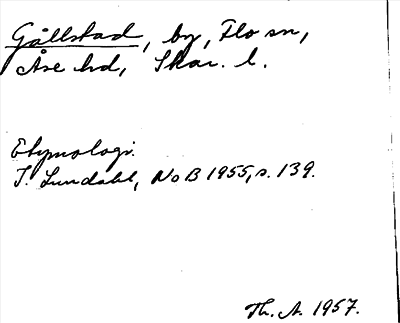 Gållstad, by, Flo sn,
Åse hd, Skar. l.
Etymologi.
I. Lundahl, NoB 1955, s. 139.
Th. A. 1957.